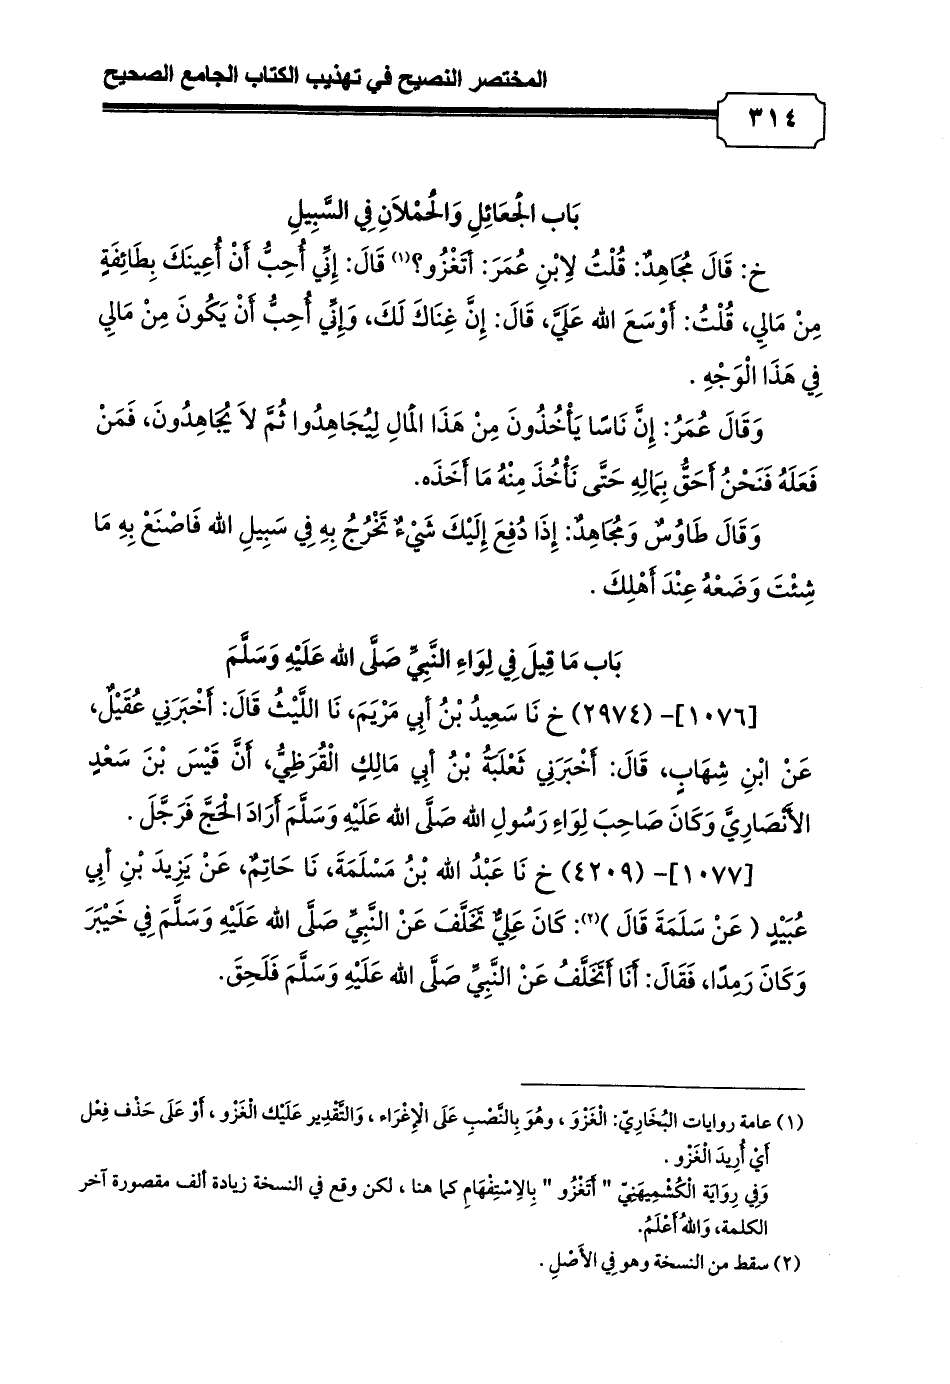 المختصر النصيح في تهذيب الكتاب الجامع الصحيح
٣١٤
بَاب الْجَعَائِلِ وَالْحُمْلَانِ فِي السَّبِيلِ
خ: قَالَ مُجَاهِدٌ: قُلْتُ لِابْنِ عُمَرَ: أَتَغْزُو؟(١) قَالَ: إِنِّي أُحِبُّ أَنْ أُعِينَكَ بِطَائِفَةٍ
مِنْ مَالِي، قُلْتُ: أَوْسَعَ الله عَلَيَّ، قَالَ: إِنَّ غِنَاكَ لَكَ، وَإِنِّي أُحِبُّ أَنْ يَكُونَ مِنْ مَالِي
فِي هَذَا الْوَجْهِ .
وَقَالَ عُمَرُ: إِنَّ نَاسًا يَأْخُذُونَ مِنْ هَذَا الْمَالِ لِيُجَاهِدُوا ثُمَّ لاَ يُجَاهِدُونَ، فَمَنْ
فَعَلَهُ فَنَحْنُ أَحَقُّ بِمَالِهِ حَتَّى نَأْخُذَ مِنْهُ مَا أَخَذَه.
وَقَالَ طَاوُسٌ وَمُجَاهِدٌ: إِذَا دُفِعَ إِلَيْكَ شَيْءٌ تَخْرُجُ بِهِ فِي سَبِيلِ الله فَاصْنَعْ بِهِ مَا
شِئْتَ وَضَعْهُ عِنْدَ أَهْلِكَ .
بَاب مَا قِيلَ فِي لِوَاءِ النَّبِيِّ صَلَّى الله عَلَيْهِ وَسَلَّمَ
[١٠٧٦]- (٢٩٧٤) خ نَا سَعِيدُ بْنُ أبِي مَرْيَمَ، نَا اللَّيْثُ قَالَ: أَخْبَرَنِي عُقَيْلٌ،
عَنْ ابْنِ شِهَابٍ، قَالَ: أَخْبَرَنِي ثَعْلَبَةُ بْنُ أبِي مَالِكٍ الْقُرَظِيُّ، أَنَّ قَيْسَ بْنَ سَعْدٍ
الأَنْصَارِيَّ وَكَانَ صَاحِبَ لِوَاءِ رَسُولِ الله صَلَّى الله عَلَيْهِ وَسَلَّمَ أَرَادَ الْحَجَّ فَرَجَّلَ .
[١٠٧٧]- (٤٢٠٩) خ نَا عَبْدُ الله بْنُ مَسْلَمَةَ، نَا حَاتِمٌ، عَنْ يَزِيدَ بْنِ أبِي
عُبَيْدٍ ( عَنْ سَلَمَةَ قَالَ )(٢): كَانَ عَلِيٌّ تَخَلَّفَ عَنْ النَّبِيِّ صَلَّى الله عَلَيْهِ وَسَلَّمَ فِي خَيْبَرَ
وَكَانَ رَمِدًا، فَقَالَ: أَنَا أَتَخَلَّفُ عَنْ النَّبِيِّ صَلَّى الله عَلَيْهِ وَسَلَّمَ فَلَحِقَ.
(١) عامة روايات البُخَارِيّ: الْغَزْوَ ، وهُوَ بِالنَّصْبِ عَلَى الْإِغْرَاء ، وَالتَّقْدِير عَلَيْك الْغَزْو ، أَوْ عَلَى حَذْف فِعْل
أَيْ أُرِيدَ الْغَزْو .
وَفِي رِوَايَة الْكُشْمِيهَنِيّ " أَتَغْزُو " بِالِاسْتِفْهَامِ كما هنا ، لكن وقع في النسخة زيادة ألف مقصورة آخر
الكلمة، وَاللهُ أَعْلَمُ.
(٢) سقط من النسخة وهو فِي الأَصْلِ .